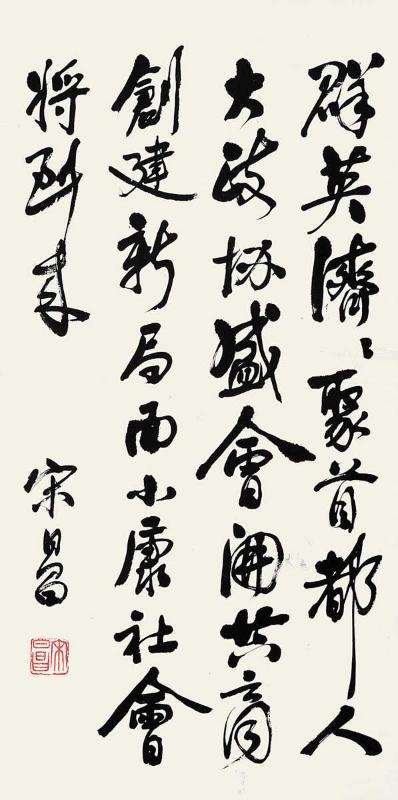 群英濟〻聚首都人
大政協盛會開共商
創建新局面小康社會
將到来
宋昌
宋昌